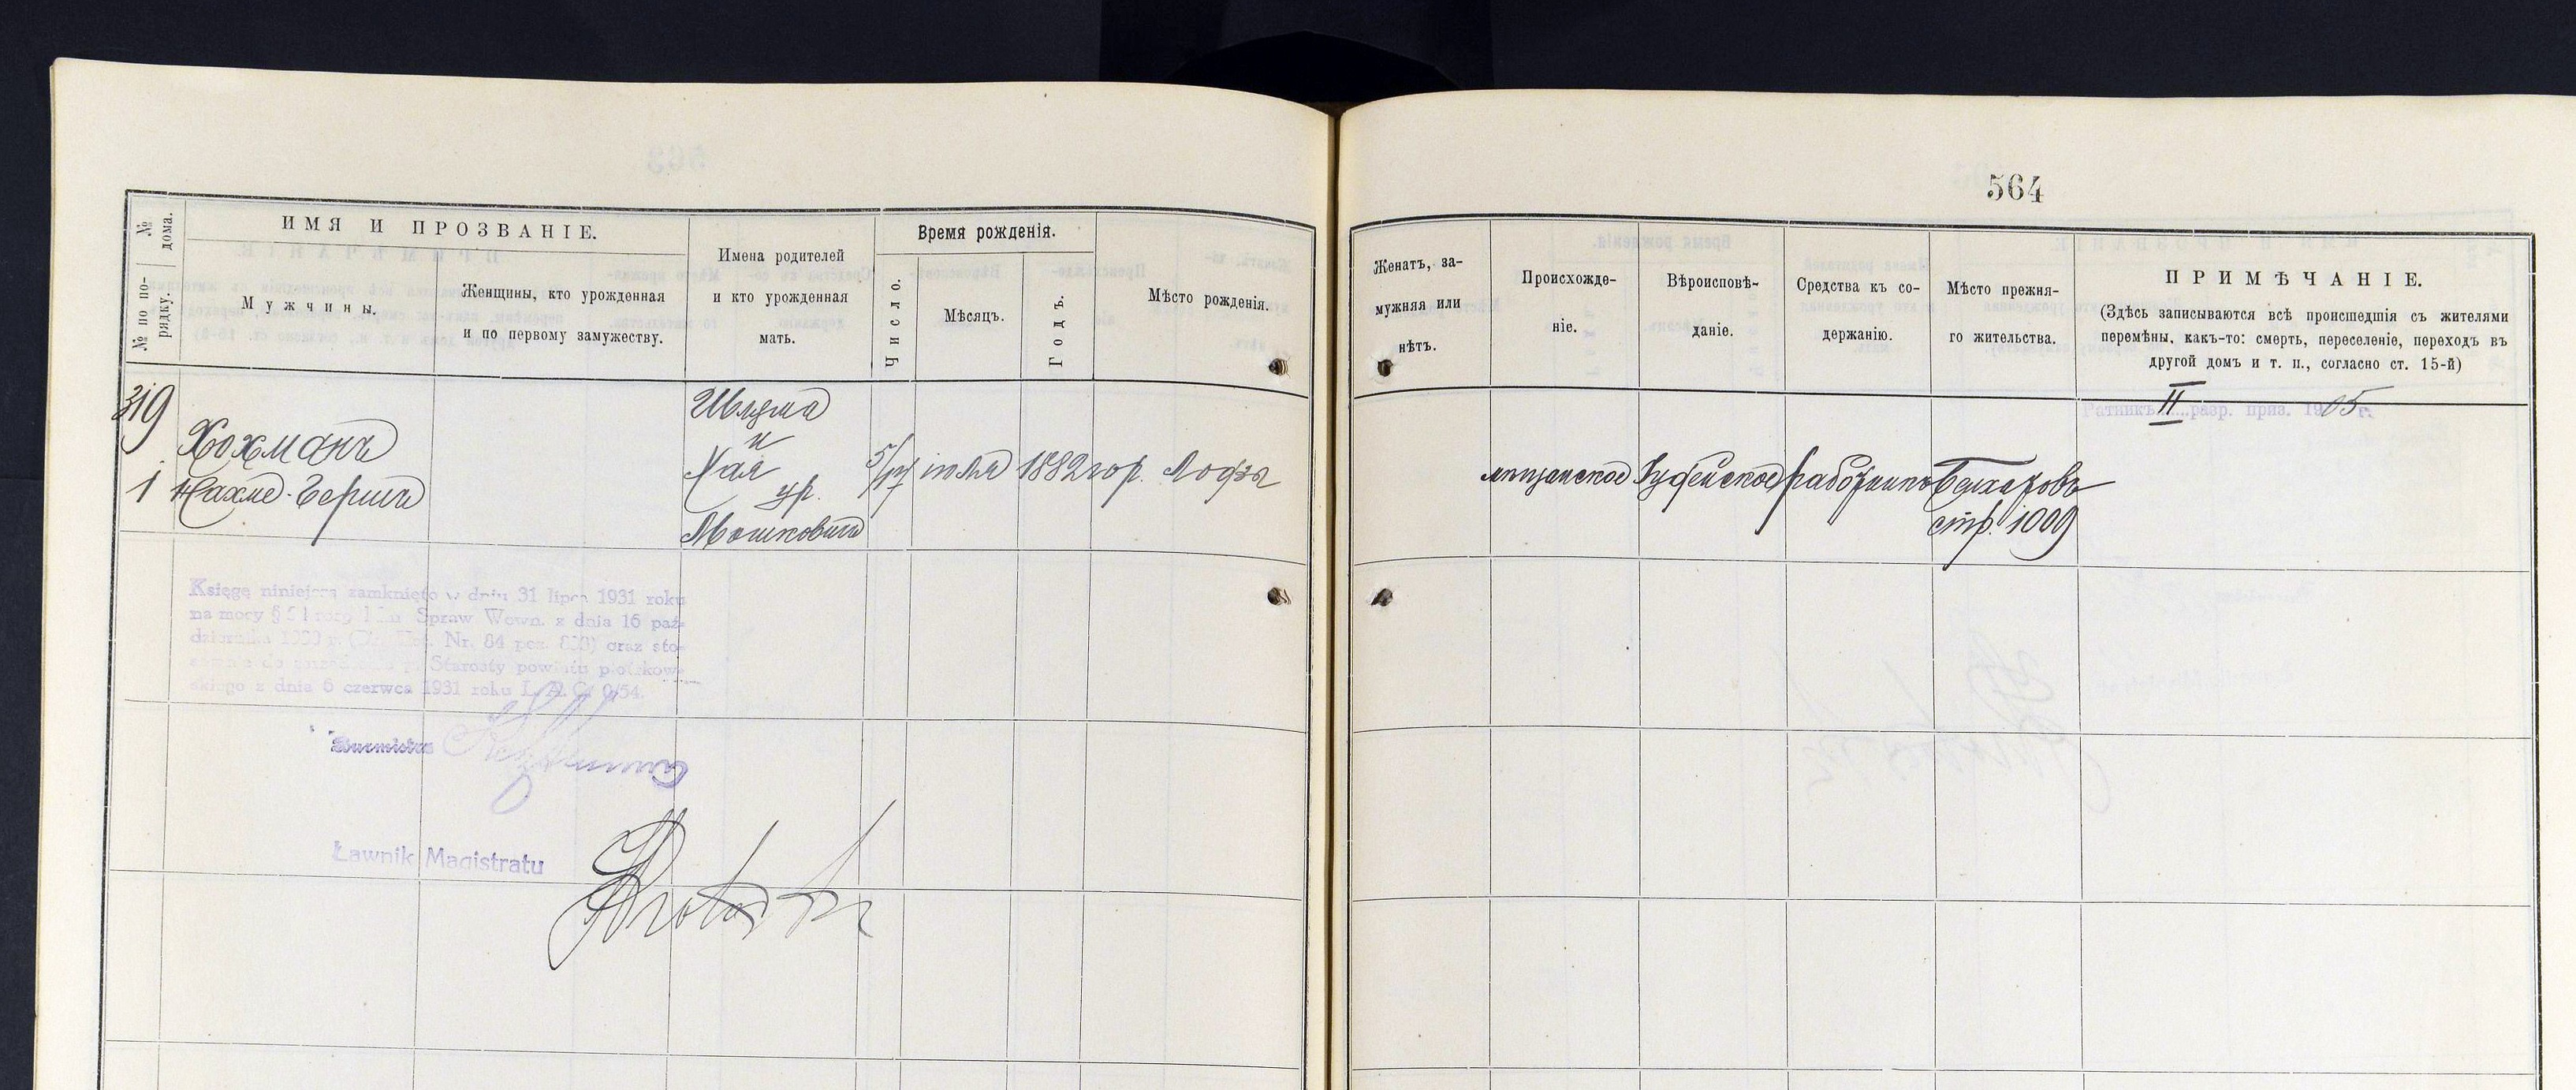 564
№ дома.
№ по порядку.
ИМЯ И ПРОЗВАНІЕ.
Мужчины.
Женщины, кто урожденная
и по первому замужеству.
Имена родителей
и кто урожденная
мать.
Время рожденія.
Число.
Мѣсяцъ.
Годъ.
Мѣсто рожденія.
Женатъ, за-
мужняя или
нѣтъ.
Происхожде-
ніе.
Вѣроисповѣ-
даніе.
Средства къ со-
держанію.
Мѣсто прежня-
го жительства.
ПРИМѢЧАНІЕ.
(Здѣсь записываются всѣ происшедшія съ жителями
перемѣны, какъ-то: смерть, переселеніе, переходъ въ
другой домъ и т. п., согласно ст. 15-й)
319
1
Хохманъ
Нахме-Берши
Шлема
и
Хая
ур.
Мошковичъ
5/17 іюля 1882 гор. Лодзь
мѣщанское Іудейское работникъ
стр. 1009
Ратникъ II разр. приз. 1905 г.
Księgę niniejszą zamknięto w dniu 31 lipca 1931 roku
na mocy § 51 rozp. Min. Spraw Wewn. z dnia 16 paź-
dziernika 1930 r. (Dz. Ust. Nr. 84 poz. 653) oraz sto-
Starosty powiatu piotrkow-
skiego z dnia 6 czerwca 1931 roku L. A. C. 9/54.
Burmistrz
Ławnik Magistratu